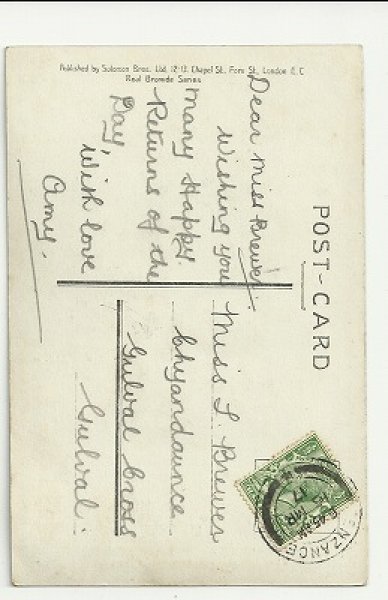 Published by Solomon Bros. Ltd, 12-13, Chapel St., Fore St., London E.C
Real Bromide Series
POST-CARD
Dear Miss Brewer.
Wishing you
Many Happy
Returns of the
Day
With love
Amy.
Miss L. Brewer
Chyandaunce
Gulval Cross
Gulval.
PENZANCE
MR
17